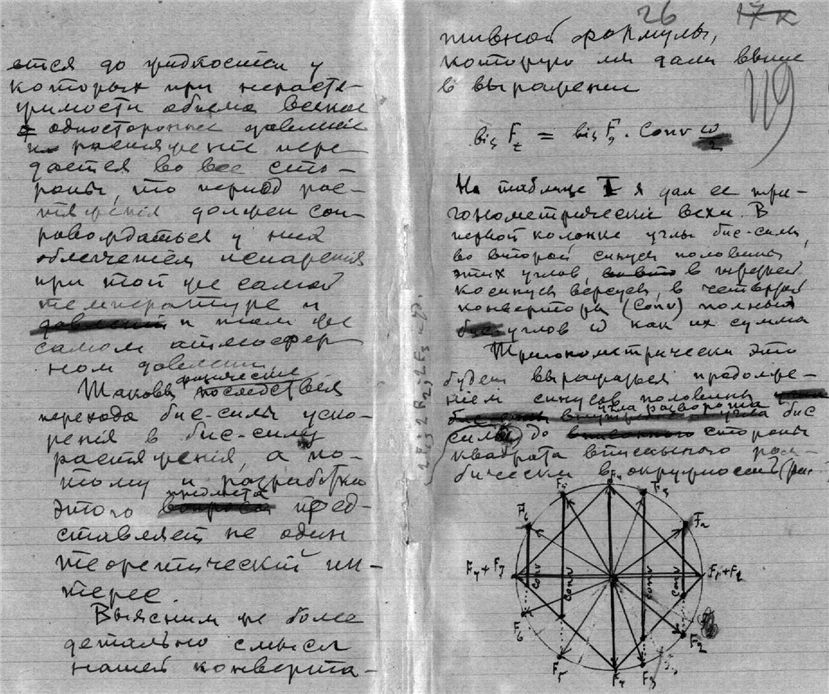 ется до жидкостей у
которых при нерастя-
жимости объема всякое
одностороннее давление
и растяжение пере-
дается во все сто-
роны, то период рас-
тяжения должен соп-
ровождаться у них
облегчением испарения
при той же самой
температуре и
давлении и том же
самом атмосфер
ном давлении
Таковы физические последствия
перехода бис-силы уско-
рения в бис-силу
растяжения, а по-
тому и разработка
этого предмета пред-
ставляет не один
теоретический ин-
терес.
Выясним же более
детально смысл
нашей конверта-
26 17к
119
тивной формулы,
которую мы дали выше
в выражении
bis F = bis F · Conv ω/2
На таблице I я дал ее три-
гонометрический вехи. В
первой колонке углы бис-силы,
во второй синусы половины
этих углов, в третьей
косинус версусы, в четвертой
конверторы (conv) полных
углов ω как их сумма
Тригонометрически это
будет выражаться продолже-
нием синусов половины
угла разворота бис
силы до стороны
квадрата вписанного ром-
бически в окружность (рис.
F₁
F₂
Conv
Conv
Conv
Conv
F₆
F₂
F₅
F₃